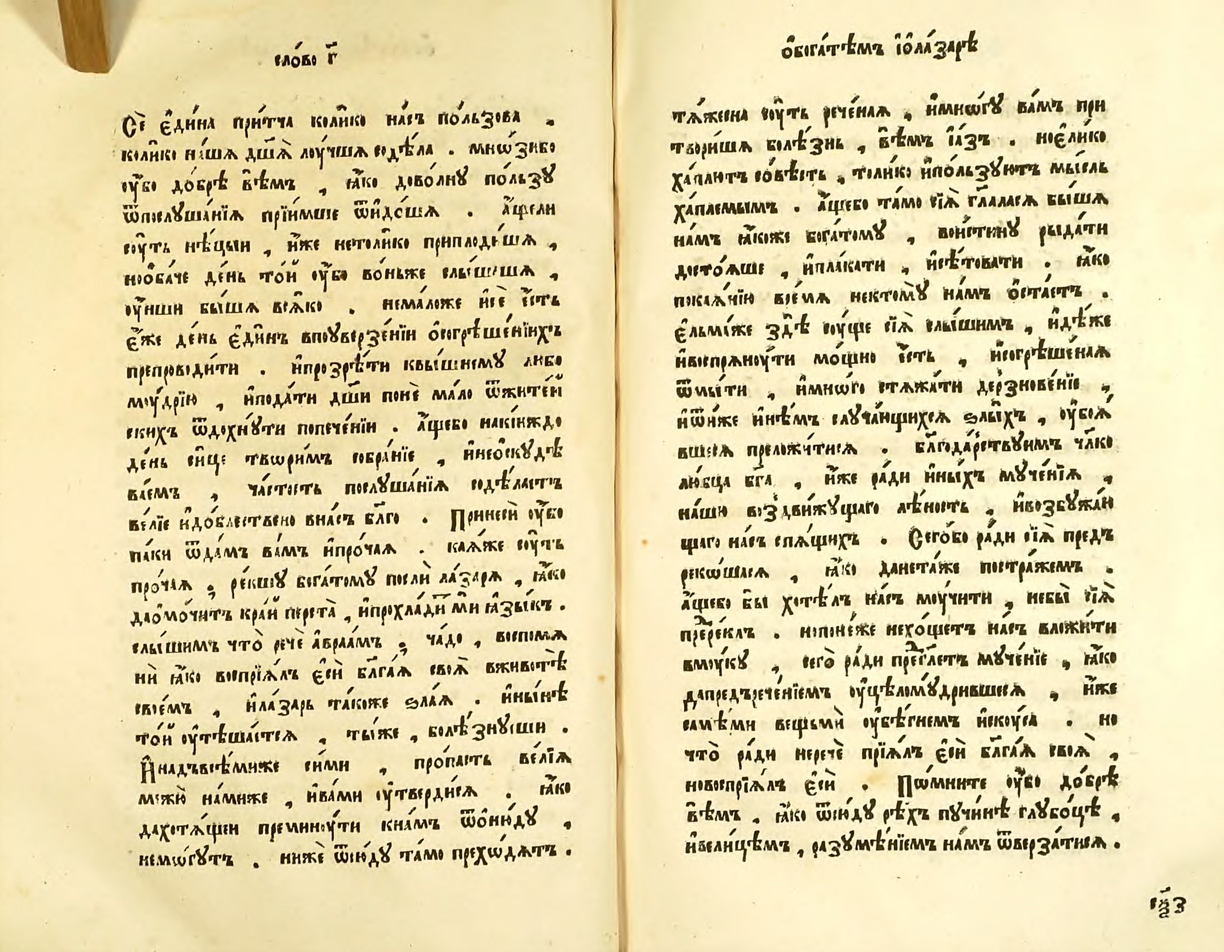 сло́во г҃
Сѐ є҆ди́на при́тча коли́ко на́съ по́льзова .
коли́ко на́шѧ дш҃ѧ̀ лоу́чшѧ содѣ́ла . мнѡ́зи бо
ᲂу҆́бо до́брѣ вѣ́мъ , ꙗ҆́ко дово́лнꙋ по́льзꙋ
ѿпослꙋша́нїѧ прїи́мше ѿидо́шѧ . а҆́щели
сꙋ́ть нѣ́цыи , и҆́же нето́лико приплоди́шѧ ,
нооба́че де́нь то́й ᲂу҆́бо во́ньже слы́шашѧ ,
ᲂу҆́нши бы́шѧ всѧ́ко . нема́ложе и҆сѐ є҆́сть
є҆́же де́нь є҆ди́нъ впоуверзе́нїи ѻ҆согрѣше́нїихъ
препроводи́ти . и҆прозрѣ́ти квы́шнемꙋ либо
моу́дрїю , и҆пода́ти дш҃и понѐ ма́ло ѿжите́й
скихъ ѿдохнꙋ́ти попече́нїи . а҆́щебо нако́ждо
де́нь си́це твѡри́мъ собра́нїе , и҆неѻскꙋдѣ
ва́емъ , ча́стость послꙋша́нїѧ содѣ́лаетъ
ве́лїе и҆до́блествено вна́съ бл҃го . Принеси́ ᲂу҆́бо
па́ки ѿда́мъ ва́мъ и҆про́чаѧ . ка́ѧже сꙋ́ть
про́чаѧ ; ре́кшꙋ бога́томꙋ послѝ ла́зарѧ , ꙗ҆́ко
даѡ҆мо́читъ кра́й перста̀ , и҆прохлади́тъ ми ꙗ҆зы́къ .
слы́шимъ что̀ речѐ а҆враа́мъ ; ча́до , воспомѧ
нѝ ꙗ҆́ко воспрїѧ́лъ є҆сѝ бл҃га́ѧ своѧ̀ вживотѣ̀
свое́мъ , и҆ла́зарь та́коже ѕла́ѧ . и҆ны́нѣ
то́й ᲂу҆тѣша́етсѧ , ты́же , болѣ́знꙋеши .
И҆надъвсѣ́миже си́ми , про́пасть ве́лїѧ
междю̀ на́миже , и҆ва́ми ᲂу҆тверди́сѧ . ꙗ҆́ко
дахотѧ́щеи преминꙋ́ти кна́мъ ѿѻнꙋ́дꙋ ,
немо́гꙋтъ . ни́же ѿсю́дꙋ та́мо прехо́дѧтъ .
ѻ҆бога́тѣмъ і҆ѻ҆ла́зарѣ
тѧ́жесна сꙋ́ть рече́наѧ , и҆мно́гꙋ ва́мъ при
твори́шѧ болѣ́знь , вѣ́мъ і҆а́зъ . ноє҆ли́ко
ха́плитъ со́вѣсть , толи́ко и҆по́льзꙋютъ мы́сль
ха́племымъ . а҆́щебо та́мо сїѧ̀ гл҃аласѧ бы́шѧ
на́мъ ꙗ҆́коже бога́томꙋ , вои́стинꙋ рыда́ти
досто́ѧше , и҆пла́кати , и҆сѣ́товати . ꙗ҆́ко
покаѧ́нїю вре́мѧ нектомꙋ̀ на́мъ ѻ҆ста́етъ .
є҆льми́же здѣ̀ сꙋ́ще сїѧ̀ слы́шимъ , и҆дѣ́же
и҆воспрѧнꙋ́ти мо́щно є҆́сть , и҆согрѣше́наѧ
ѿмы́ти , и҆мно́го стѧжа́ти дерзнове́нїе ,
и҆ѿи́же и҆нѣ́мъ слꙋча́ющихсѧ ѕлы́хъ , ᲂу҆боѧ́
вшесѧ преложи́тисѧ . бл҃года́рствꙋимъ чл҃ко
лю́бца бг҃а , и҆́же ра́ди и҆ны́хъ мꙋче́нїѧ ,
на́шꙋ воздви́жꙋщаго лѣ́ность , и҆возбꙋжа́ю
щаго на́съ спѧ́щихъ . Сего́бо ра́ди сїѧ̀ предъ
реко́шасѧ , ꙗ҆́ко данета́же постра́жемъ .
а҆́щебо бы̀ хотѣ́лъ на́съ мꙋ́чити , небы̀ сїѧ̀
пре́рекл . нопоне́же нехо́щетъ на́съ вложи́ти
вмꙋ́кꙋ , сего̀ ра́ди прегл҃етъ мꙋче́нїе , ꙗ҆́ко
дапредърече́нїемъ ᲂу҆цѣломꙋ́дрившесѧ , и҆́же
самѣ́ми вещьмѝ ᲂу҆бѣ́гнемъ и҆скꙋ́са . но
что̀ ра́ди неречѐ прїѧ́лъ є҆сѝ бл҃га́ѧ своѧ̀ ,
новоспрїѧ́лъ є҆сѝ . По́мните ᲂу҆́бо до́брѣ
вѣ́мъ , ꙗ҆́ко ѿсю́дꙋ рѣ́хъ пꙋчи́нѣ глꙋбо́цѣ ,
и҆вели́цѣмъ , разꙋмѣ́нїемъ на́мъ ѿверза́тисѧ .